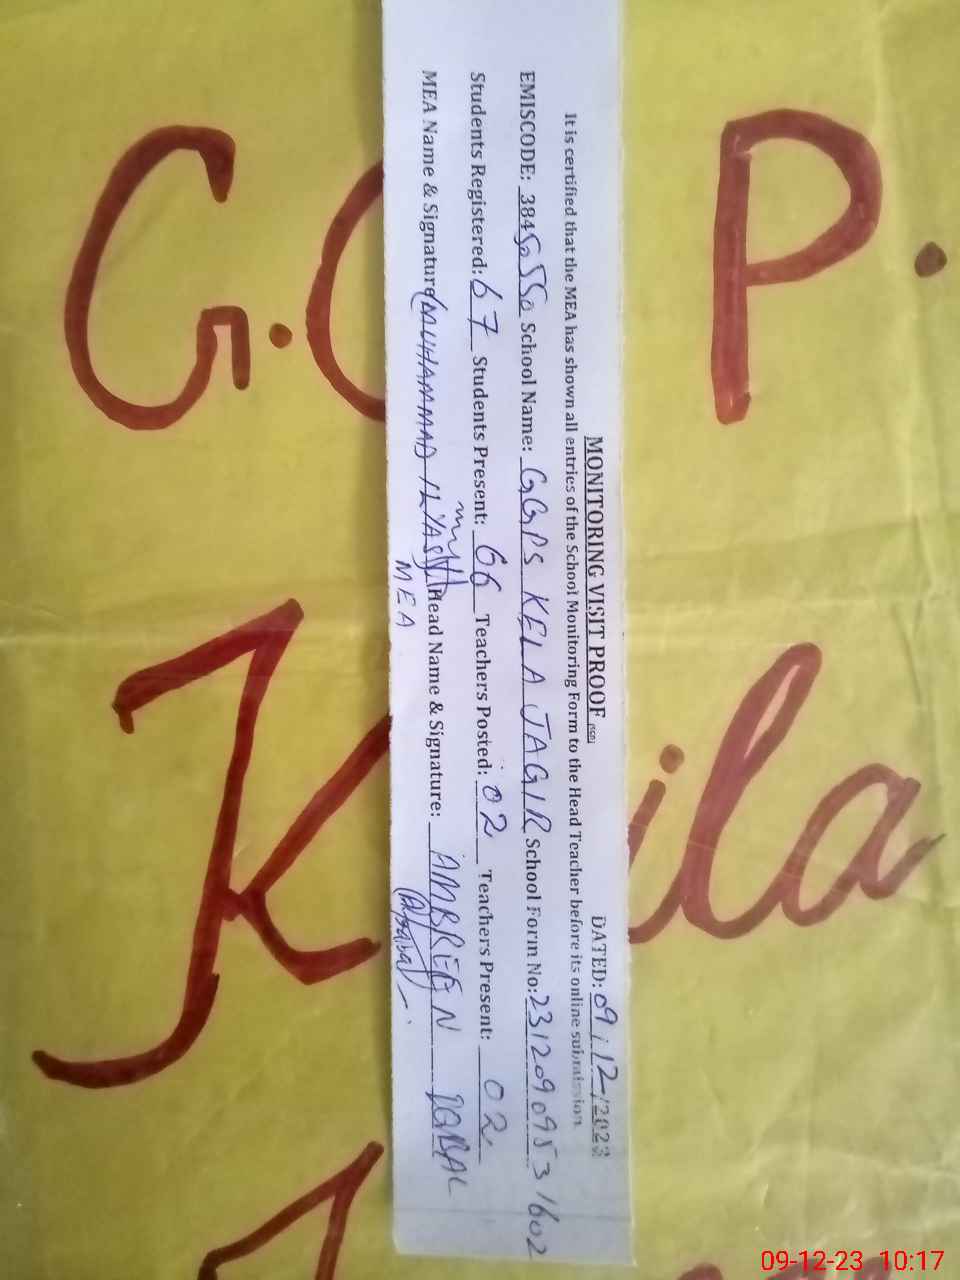 MONITORING VISIT PROOF (SED) DATED: 09/12/2023
It is certified that the MEA has shown all entries of the School Monitoring Form to the Head Teacher before its online submission
EMISCODE: 38450550 School Name: GGPS KELA JAGIR School Form No: 2312090953 1602
Students Registered: 67 Students Present: 66 Teachers Posted: 02 Teachers Present: 02
MEA Name & Signature (MUHAMMAD ILYAS) Head Name & Signature: AMBREEN IQBAL
MEA
P.
G.G
Kila
09-12-23 10:17